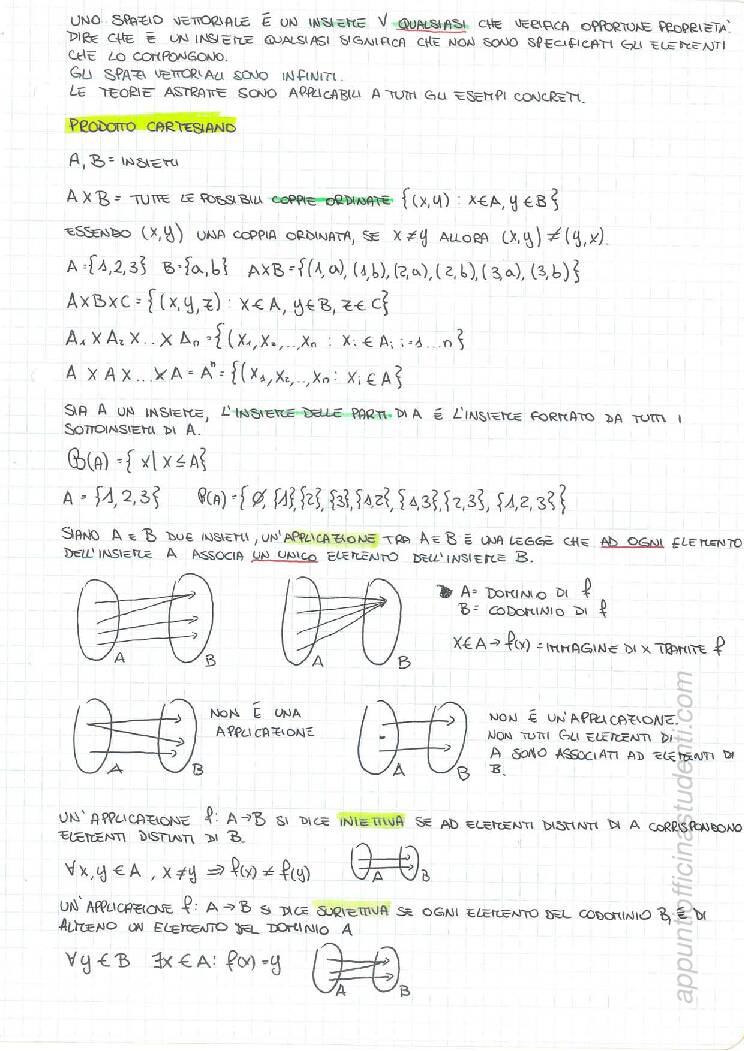 UNO SPAZIO VETTORIALE È UN INSIEME V QUALSIASI CHE VERIFICA OPPORTUNE PROPRIETÀ.
DIRE CHE È UN INSIEME QUALSIASI SIGNIFICA CHE NON SONO SPECIFICATI GLI ELEMENTI
CHE LO COMPONGONO.
GLI SPAZI VETTORIALI SONO INFINITI.
LE TEORIE ASTRATTE SONO APPLICABILI A TUTTI GLI ESEMPI CONCRETI.
PRODOTTO CARTESIANO
A, B = INSIEMI
A X B = TUTTE LE POSSIBILI COPPIE ORDINATE {(x,y) : x∈A, y∈B}
ESSENDO (x,y) UNA COPPIA ORDINATA, SE x≠y ALLORA (x,y)≠(y,x).
A={1,2,3} B={a,b} AXB={(1,a),(1,b),(2,a),(2,b),(3,a),(3,b)}
AXBXC={(x,y,z) : x∈A, y∈B, z∈C}
A₁ X A₂ X... X Aₙ={(x₁,x₂,..,xₙ : xᵢ∈Aᵢ i=1...n}
A X A X... X A = Aⁿ={(x₁,x₂,..,xₙ : xᵢ∈A}
SIA A UN INSIEME, L'INSIEME DELLE PARTI DI A È L'INSIEME FORMATO DA TUTTI I
SOTTOINSIEMI DI A.
℘(A)={x| x≤A}
A = {1,2,3} ℘(A)={∅,{1}{2},{3},{1,2},{1,3},{2,3},{1,2,3}}
SIANO A E B DUE INSIEMI, UN'APPLICAZIONE TRA A E B È UNA LEGGE CHE AD OGNI ELEMENTO
DELL'INSIEME A ASSOCIA UN UNICO ELEMENTO DELL'INSIEME B.
A B A B
A= DOMINIO DI f
B= CODOMINIO DI f
x∈A→f(x) = IMMAGINE DI x TRAMITE f
A B
NON È UNA
APPLICAZIONE
A B
NON È UN'APPLICAZIONE.
NON TUTTI GLI ELEMENTI DI
A SONO ASSOCIATI AD ELEMENTI DI
B.
UN'APPLICAZIONE f: A→B SI DICE INIETTIVA SE AD ELEMENTI DISTINTI DI A CORRISPONDONO
ELEMENTI DISTINTI DI B.
∀x,y∈A, x≠y ⇒ f(x)≠f(y)
A B
UN'APPLICAZIONE f: A→B SI DICE SURIETTIVA SE OGNI ELEMENTO DEL CODOMINIO B, È DI
ALMENO UN ELEMENTO DEL DOMINIO A
∀y∈B ∃x∈A: f(x)=y
A B
appuntiofficinastudenti.com